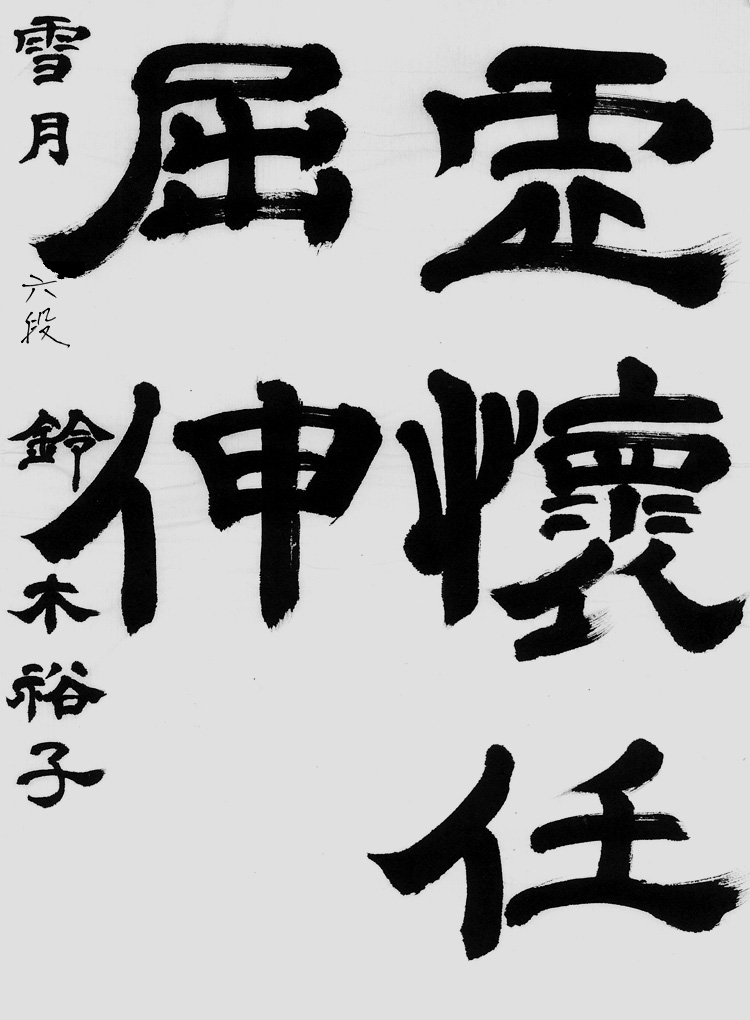 虚懷任
屈伸
雪月 六段 鈴木裕子